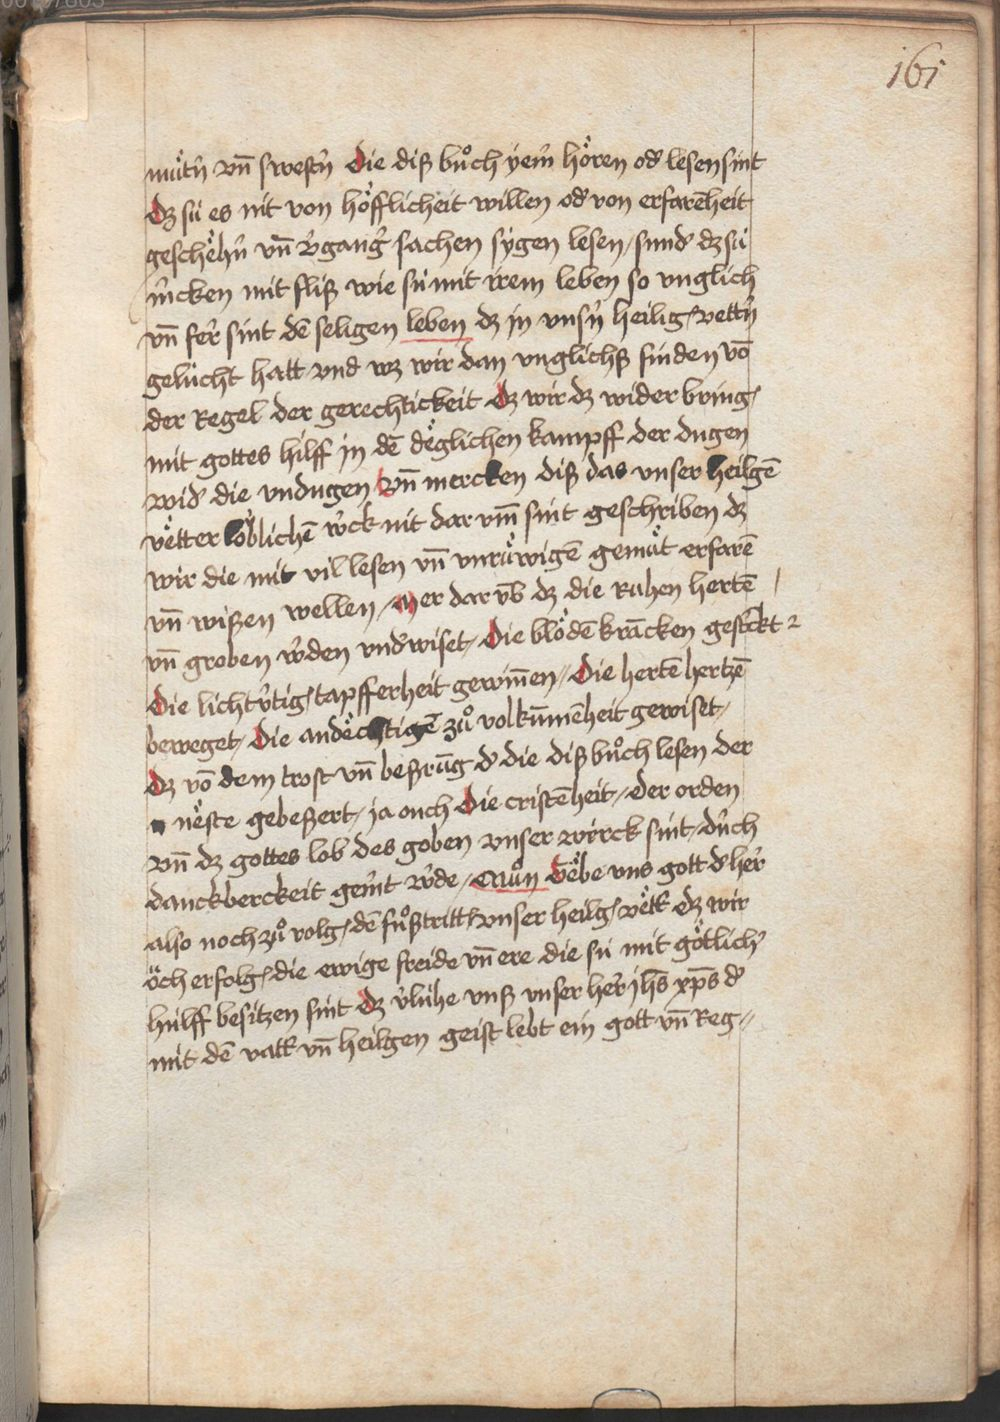 161
mütñ vñ swestñ Die diß bůch yem̄ hören od' lesen sint
Dz sü es nit von höfflicheit willen od' von erfarēheit
geschëhn̄ vñ v'gang' sachen sÿgen lesen / sund' dz sü
m'cken mit fliß wie sü mit irem leben so vnglich
vñ fer' sint dē seligen leben dz in vns'n heilig' vettñ
gelücht hatt vnd wz wir dan vnglichß finden vō
der Regel der gerechtickeit Dz wir dz wider bring'
mit gottes hilff in dē dëglichen kampff der dugen
wid' die vndugen Vñ mercken diß das vnser heilgē
vëtter löblichē w'ck nit dar vm̄ sint geschriben dz
wir die mit vil lesen vñ vnrüwigē gemüt erfarē
vñ wißen wellen / Mer dar vb dz die Ruhen hertē
vñ groben w'den vnd'wiset / Die blödē krācken gest'ckt
Die lichtv'tig' tapfferheit gewiñen / Die hertē hertzē
beweget / Die andëchtigē zů volkum̄ēheit gewiset /
Dz vō dem trost vñ beßrūg d' die diß bůch lesen der
nëste gebeßert / ja ouch Die cristēheit / der orden
vñ dz gottes lob des goben vnser wirck sint / durch
danckberckeit gem't w'de / Nůn Gëbe vns gott d' her'
also noch zů volg' dē fůßtritt vnser heilg' vëtt' Dz wir
öch erfolg' die ewige freide vñ ere die sü mit götlich'
hülff besitzen sint Dz v'lühe vnß vnser her' jhs xp̄s d'
mit dē vatt' vñ heilgen geist lebt ein gott vñ Reg'